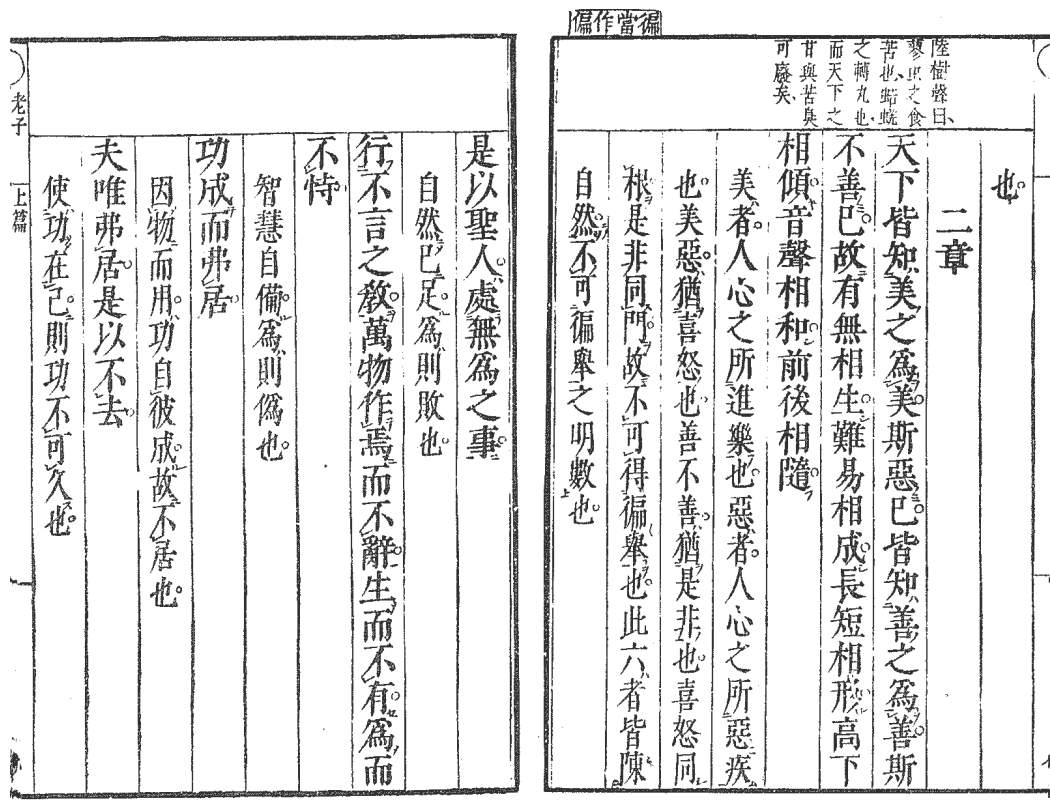 徧當作偏
陸樹聲曰
蓼䖝之食
苦也蜣蜋
之轉丸也
而天下之
甘與苦臭
可廢矣
也
二章
天下皆知美之爲美斯惡已皆知善之爲善斯
不善已故有無相生難易相成長短相形高下
相傾音聲相和前後相隨
美者人心之所進樂也惡者人心之所惡疾
也美惡猶喜怒也善不善猶是非也喜怒同
根是非同門故不可得徧舉也此六者皆陳
自然不可徧舉之明數也
是以聖人處無爲之事
自然已足爲則敗也
行不言之敎萬物作焉而不辭生而不有爲而
不恃
智慧自備爲則僞也
功成而弗居
因物而用功自彼成故不居也
夫唯弗居是以不去
使功在己則功不可久也
老子
上篇